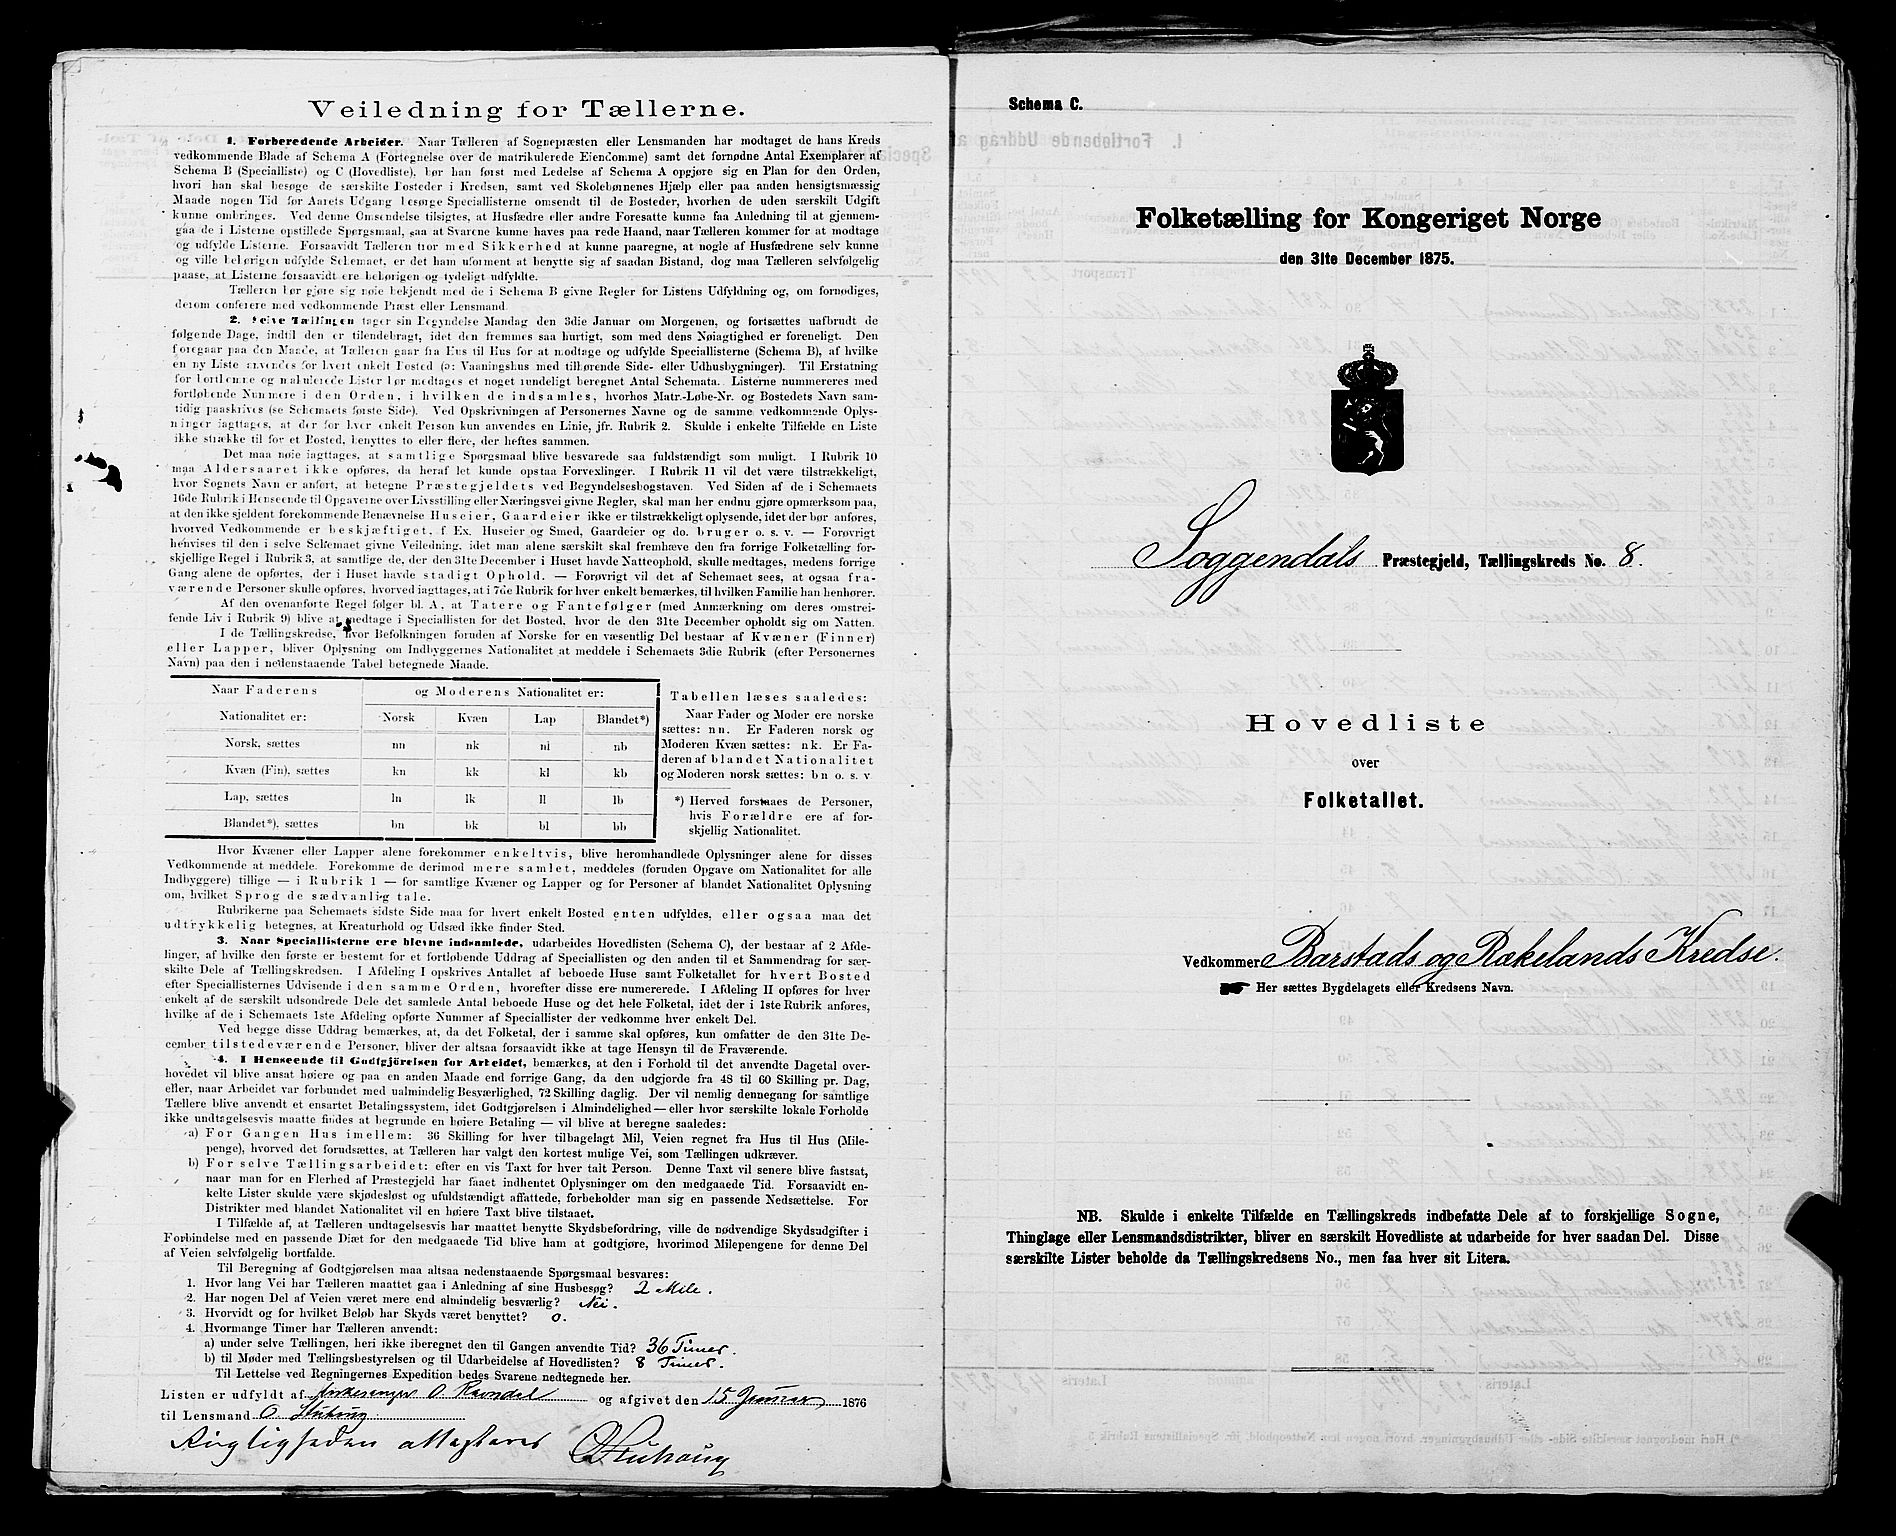 Veiledning for Tællerne.
1. Forberedende Arbeider. Naar Tælleren af Sognepræsten eller Lensmanden har modtaget de hans Kreds
vedkommende Blade af Schema A (Fortegnelse over de matrikulerede Eiendomme) samt det fornødne Antal Exemplarer af
Schema B (Specialliste) og C (Hovedliste), bør han først med Ledelse af Schema A opgjøre sig en Plan for den Orden,
hvori han skal besøge de særskilte Bosteder i Kredsen, samt ved Skolebørnenes Hjælp eller paa anden hensigtsmæssig
Maade nogen Tid før Aarets Udgang besørge Speciallisterne omsendt til de Bosteder, hvorhen de uden særskilt Udgift
kunne ombringes. Ved denne Omsendelse tilsigtes, at Husfædre eller andre Foresatte kunne faa Anledning til at gjennem-
gaa de i Listerne opstillede Spørgsmaal, saa at Svarene kunne haves paa rede Haand, naar Tælleren kommer for at modtage
og udfylde Listerne. Forsaavidt Tælleren tror med Sikkerhed at kunne paaregne, at nogle af Husfædrene selv kunne
og ville behørigen udfylde Schemaet, er det ham uforment at benytte sig af saadan Bistand, dog maa Tælleren selvfølgelig
paase, at Listerne forsaavidt ere behørigen og tydeligt udfyldte.
Tælleren bør gjøre sig nøie bekjendt med de i Schema B givne Regler for Listens Udfyldning og, om fornødiges,
derom conferere med vedkommende Præst eller Lensmand.
2. Selve Tællingen tager sin Begyndelse Mandag den 3die Januar om Morgenen, og fortsættes uafbrudt de
følgende Dage, indtil den er tilendebragt, idet den fremmes saa hurtigt, som med dens Nøiagtighed er foreneligt. Den
foregaar paa den Maade, at Tælleren gaar fra Hus til Hus for at modtage og udfylde Speciallisterne (Schema B), af hvilke
en ny Liste anvendes for hvert enkelt Bosted (ɔ: Vaaningshus med tilhørende Side- eller Udhusbygninger). Til Erstatning
for bortkomne og makulerede Lister bør medtages et noget rundeligt beregnet Antal Schemata. Listerne nummereres med
fortløbende Nummere i den Orden, i hvilken de indsamles, hvorhos Matr.-Løbe-Nr. og Bostedets Navn sam-
tidig paaskrives (se Schemaets første Side). Ved Opskrivningen af Personernes Navne og de samme vedkommende Oplys-
ninger iagttages, at der for hver enkelt Person kun anvendes en Linie, jfr. Rubrik 2. Skulde i enkelte Tilfælde en Liste
ikke strække til for et Bosted, benyttes to eller flere, der heftes sammen.
Det maa nøie iagttages, at samtlige Spørgsmaal blive besvarede saa fuldstændigt som muligt. I Rubrik 10
maa Aldersaaret ikke opføres, da heraf let kunde opstaa Forvexlinger. I Rubrik 11 vil det være tilstrækkeligt,
hvor Sognets Navn er anført, at betegne Præstegjeldets ved Begyndelsesbogstaven. Ved Siden af de i Schemaets
16de Rubrik i Henseende til Opgaverne over Livsstilling eller Næringsvei givne Regler, skal man her endnu gjøre opmærksom paa,
at den ikke sjeldent forekommende Benævnelse Huseier, Gaardeier ikke er tilstrækkeligt oplysende, idet der bør anføres,
hvorved Vedkommende er beskjæftiget, f Ex. Huseier og Smed, Gaardeier og do. bruger o. s. v. — Forøvrigt
henvises til den i selve Schemaet givne Veiledning, idet man alene særskilt skal fremhæve den fra forrige Folketælling for-
skjellige Regel i Rubrik 3, at samtlige de, der den 31te December i Huset havde Natteophold, skulle medtages, medens forrige
Gang alene de opførtes, der i Huset havde stadigt Ophold. — Forøvrigt vil det af Schemaet sees, at ogsaa fra-
værende Personer skulle opføres, hvorved iagttages, at i 7de Rubrik for hver enkelt bemærkes, til hvilken Familie han henhører.
Af den ovenanførte Regel følger bl. A., at Tatere og Fantefølger (med Anmærkning om deres omstrei-
fende Liv i Rubrik 9) blive at medtage i Speciallisten for det Bosted, hvor de den 31te December opholdt sig om Natten.
I de Tællingskredse, hvor Befolkningen foruden af Norske for en væsentlig Del bestaar af Kvæner (Finner)
eller Lapper, bliver Oplysning om Indbyggernes Nationalitet at meddele i Schemaets 3die Rubrik (efter Personernes
Navn) paa den i nedenstaaende Tabel betegnede Maade.
Naar Faderens og Moderens Nationalitet er:
Nationalitet er: Norsk Kvæn Lap Blandet*)
Norsk, sættes nn nk nl nb
Kvæn (Fin), sættes kn kk kl kb
Lap, sættes ln lk ll lb
Blandet*), sættes bn bk bl bb
Tabellen læses saaledes:
Naar Fader og Moder ere norske
sættes: nn. Er Faderen norsk og
Moderen Kvæn sættes: nk. Er Fa-
deren af blandet Nationalitet
og Moderen norsk sættes: bn o. s. v
*) Herved forstaaes de Personer,
hvis Forældre ere af for-
skjellig Nationalitet.
Hvor Kvæner eller Lapper alene forekommer enkeltvis, blive heromhandlede Oplysninger alene for disses
Vedkommende at meddele. Forekomme de derimod mere samlet, meddeles (foruden Opgave om Nationalitet for alle
Indbyggere) tillige — i Rubrik 1 — for samtlige Kvæner og Lapper og for Personer af blandet Nationalitet Oplysning
om, hvilket Sprog de sædvanlig tale.
Rubrikerne paa Schemaets sidste Side maa for hvert enkelt Bosted enten udfyldes, eller ogsaa maa det
udtrykkelig betegnes, at Kreaturhold og Udsæd ikke finder Sted.
3. Naar Speciallisterne ere blevne indsamlede, udarbeides Hovedlisten (Schema C), der bestaar af 2 Afde-
linger, af hvilke den første er bestemt for et fortløbende Uddrag af Speciallisten og den anden til et Sammendrag for sær-
skilte Dele af Tællingskredsen. I Afdeling I opskrives Antallet af beboede Huse samt Folketallet for hvert Bosted
efter Speciallisternes Udvisende i den samme Orden, hvorefter disse ere nummererede. I Afdeling II opføres for hver
enkelt af de særskilt udsondrede Dele det samlede Antal beboede Huse og det hele Folketal, idet der i 1ste Rubrik anføres,
hvilke af de i Schemaets 1ste Afdeling opførte Nummer af Speciallister der vedkomme hver enkelt Del.
Ved begge disse Uddrag bemærkes, at, da det Folketal, der i samme skal opføres, kun omfatter de den 31te De-
cember tilstedeværende Personer, bliver der altsaa forsaavidt ikke at tage Hensyn til de Fraværende.
4. I Henseende til Godtgjörelsen for Arbeidet, bemærkes, at den i Forhold til det anvendte Dagetal over-
hovedet vil blive ansat høiere og paa en anden Maade end forrige Gang, da den udgjorde fra 48 til 60 Skilling pr. Dag,
eller, naar Arbeidet var forbundet med ualmindelig Besværlighed, 72 Skilling daglig. Der vil nemlig dennegang for samtlige
Tællere blive anvendt et ensartet Betalingssystem, idet Godtgjørelsen i Almindelighed — eller hvor særskilte lokale Forholde
ikke undtagelsesvis maatte findes at begrunde en høiere Betaling — vil blive at beregne saaledes:
a) For Gangen Hus imellem: 36 Skilling for hver tilbagelagt Mil, Veien regnet fra Hus til Hus (Mile-
penge), hvorved det forudsættes, at Tælleren har valgt den kortest mulige Vei, som Tællingen udkræver.
b) For selve Tællingsarbeidet: efter en vis Taxt for hver talt Person. Denne Taxt vil senere blive fastsat,
naar man for en Flerhed af Præstegjeld har faaet indhentet Oplysninger om den medgaaede Tid. Forsaavidt en-
kelte Lister skulde være skjødesløst og ufuldstændigt affattede, forbeholder man sig en passende Nedsættelse. For
Distrikter med blandet Nationalitet vil en høiere Taxt blive tilstaaet.
I Tilfælde af, at Tælleren undtagelsesvis har maattet benytte Skydsbefordring, ville de nødvendige Skydsudgifter i
Forbindelse med en passende Diæt for den medgaaede Tid blive ham at godtgjøre, hvorimod Milepengene for denne Del
af Veien selvfølgelig bortfalde.
Til Beregning af Godtgjørelsen maa altsaa nedenstaaende Spørgsmaal besvares:
1. Hvor lang Vei har Tælleren maattet gaa i Anledning af sine Husbesøg? 2 Mile.
2. Har nogen Del af Veien været mere end almindelig besværlig? Nei.
3. Hvorvidt og for hvilket Beløb har Skyds været benyttet? 0.
4. Hvormange Timer har Tælleren anvendt:
a) under selve Tællingen, heri ikke iberegnet den til Gangen anvendte Tid? 36 Timer.
b) til Møder med Tællingsbestyrelsen og til Udarbeidelse af Hovedlisten? 8 Timer.
Til Lettelse ved Regningernes Expedition bedes Svarene nedtegnede her.
Listen er udfyldt af Kirkesanger O. Ravndal og afgivet den 15 Januar 1876
til Lensmand O. Stuhaug
Rigtigheden attesteres OStuhaug
Schema C.
Folketælling for Kongeriget Norge
den 31te December 1875.
Soggendals Præstegjeld, Tællingskreds No. 8.
Hovedliste
over
Folketallet.
Vedkommer Barstads og Rækelands Kredse.
Her sættes Bygdelagets eller Kredsens Navn.
NB. Skulde i enkelte Tilfælde en Tællingskreds indbefatte Dele af to forskjellige Sogne,
Thinglage eller Lensmandsdistrikter, bliver en særskilt Hovedliste at udarbeide for hver saadan Del. Disse
særskilte Lister beholde da Tællingskredsens No., men faa hver sit Litera.